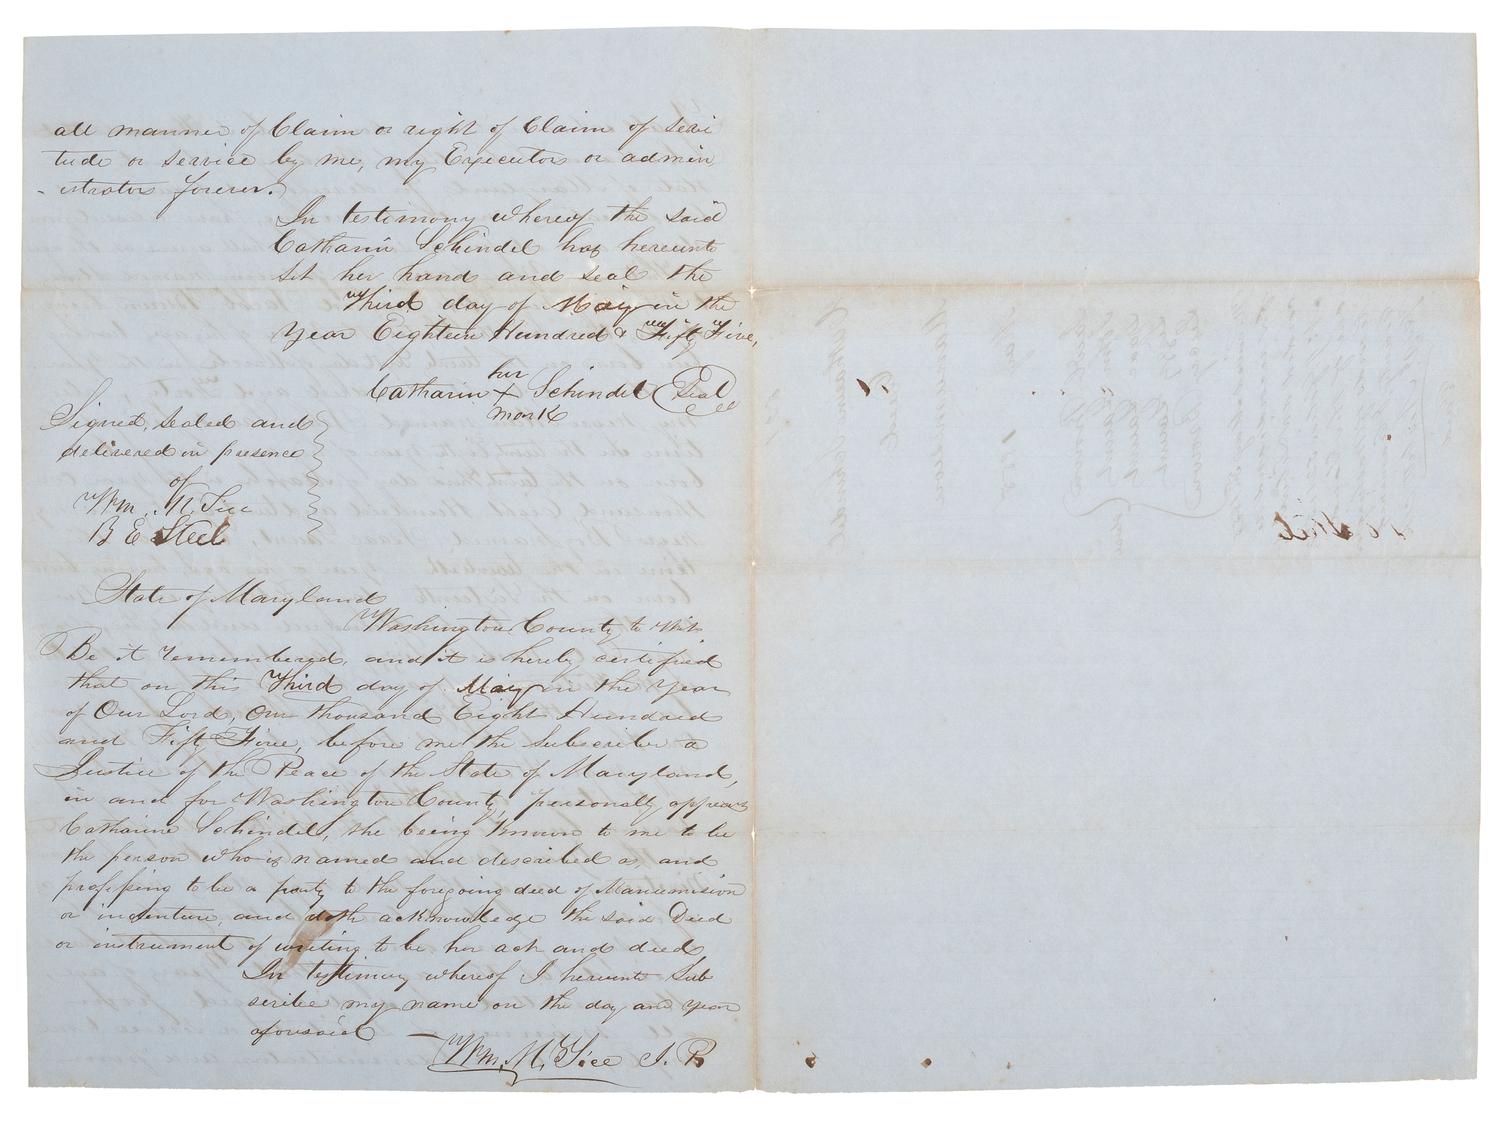 all manner of Claim or right of Claim of servi
tude or service by me, my Executors or admin
- istrators forever.
In testimony whereof the said
Catharin Schindel has hereunto
set her hand and seal the
Third day of May in the
Year Eighteen Hundred & Fifty Five,
her
Catharin + Schindel Seal
mark
Signed, sealed and
delivered in presence
of
Wm. M. Tice
B E Steel
State of Maryland
Washington County to wit
Be it remembered, and it is hereby certified
that on this Third day of May in the Year
of Our Lord, One thousand Eight Hundred
and Fifty Five, before me the Subscriber a
Justice of the Peace of the State of Maryland,
in and for Washington County, personally appears
Catharine Schindel, she being known to me to be
the person who is named and described as, and
professing to be a party to the foregoing deed of Manumision
or indenture, and doth acknowledge the said Deed
or instrument of writing to be her act and deed
In testimony whereof I hereunto Sub
scribe my name on the day and year
aforesaid —
Wm. M. Tice J. P